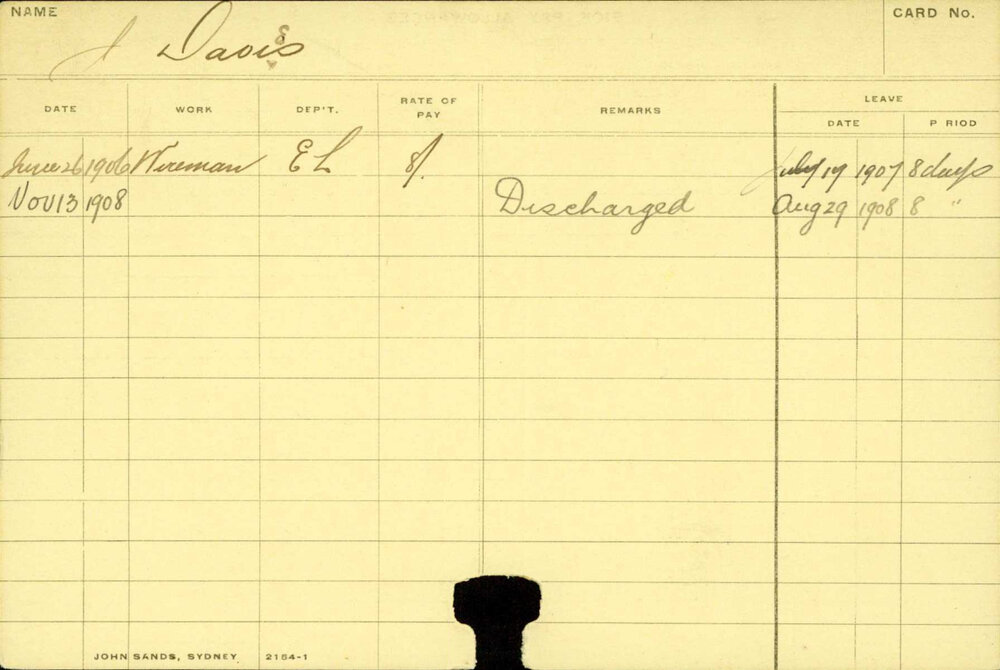 NAME
CARD No.
J Davis
DATE WORK DEP'T. RATE OF PAY REMARKS LEAVE
DATE P RIOD
June 26 1906 Wireman EL 8/. July 17 1907 8 days
Nov 13 1908 Discharged Aug 29 1908 8 "
JOHN SANDS, SYDNEY 2154-1